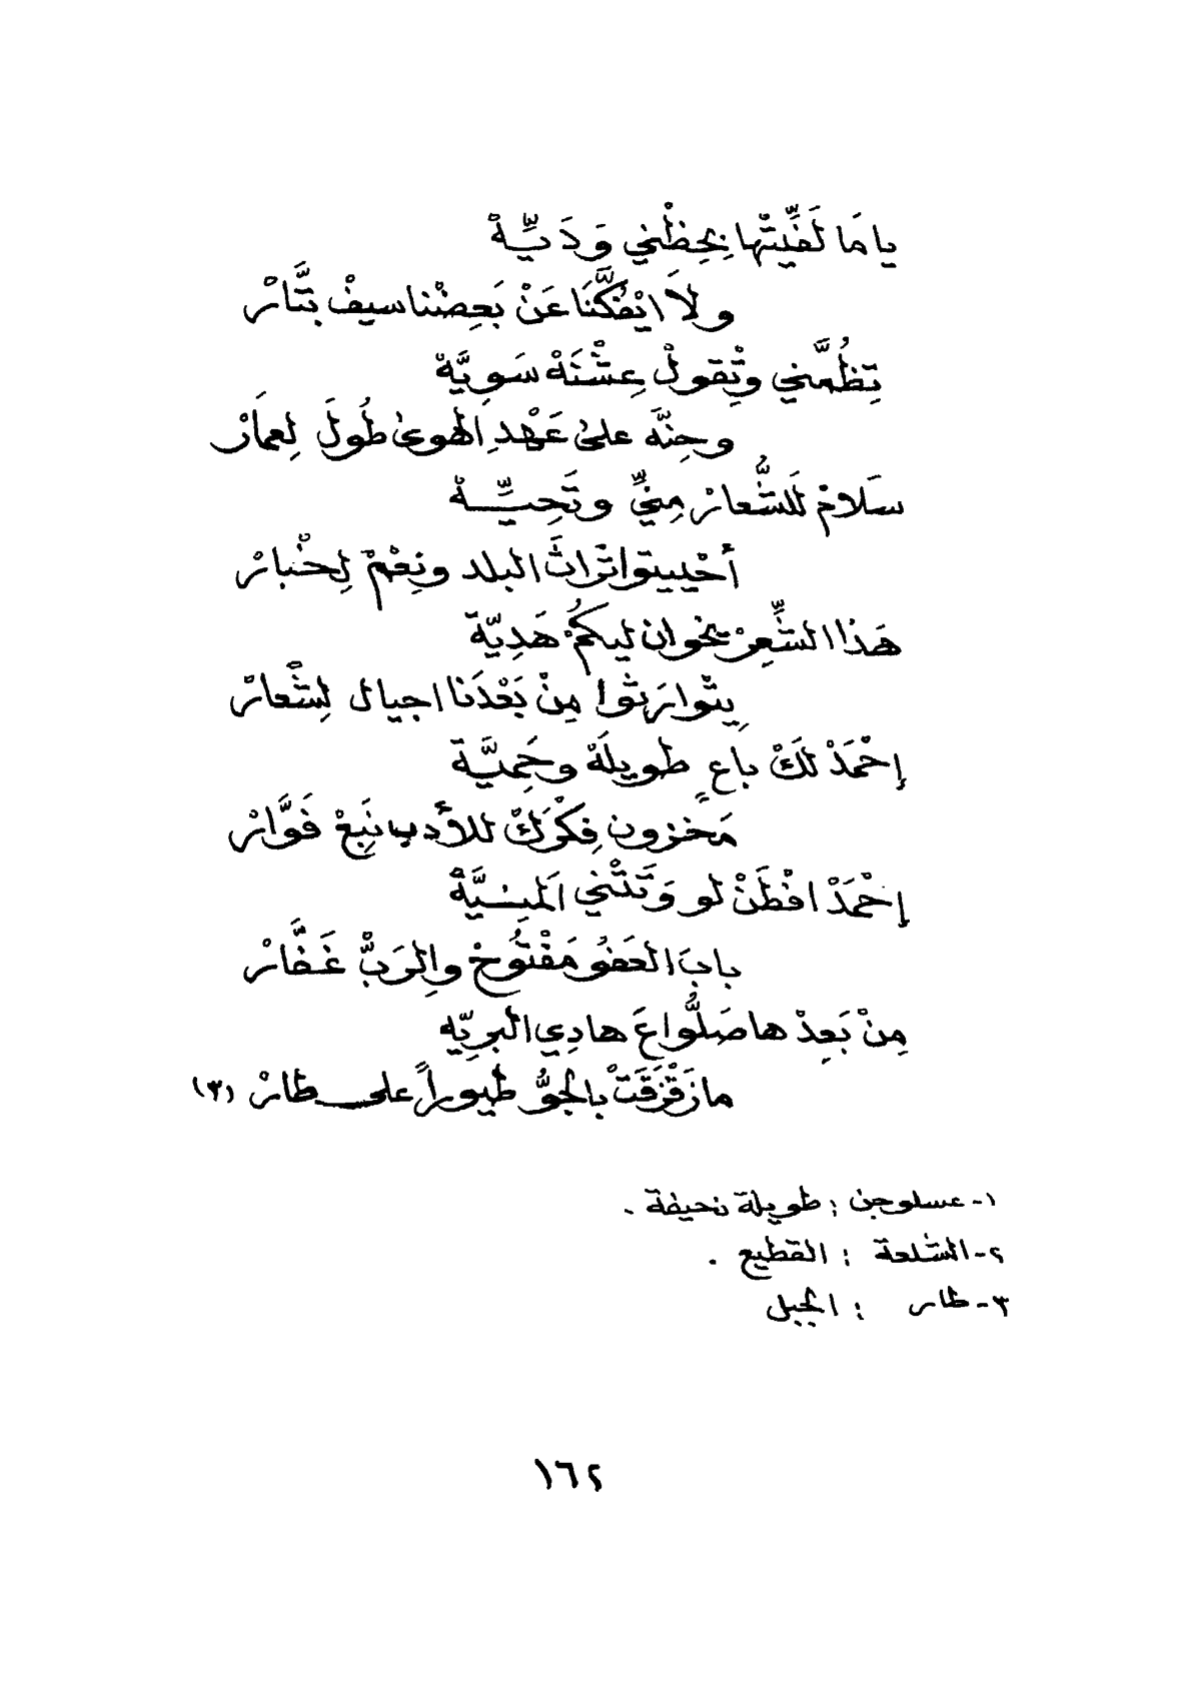 يا مَا لَفِّيتْها بِحِظْني وَدَيِّـهْ
ولاَ ايْفُكَّنَا عَنْ بَعِضْنا سيفْ بتَّارْ
تِظُمَّني وتِْقولْ عِشْنَهْ سَوِيَّهْ
وحِنَّه على عَهْدِ الهوى طُولَ لِعمَارْ
سَلامْ لَلشُّعارْ مِنيِّ وتَحِيِّـــهْ
أحْييتوا تْراثَ البلد ونِعْمْ لِخْبارْ
هَذا الشِّعِرْ يخوان ليكُمْ هَدِيّة
يِتْوارَثوا مِنْ بَعْدَنا اجيال لِشْعارْ
إحْمَدْ لَكْ باعٍ طويلَهْ وحَمِيَّة
مَخزون فِكْرَكْ للأدب نَبِعْ فَوَّارْ
إحْمَدْ افْطَنْ لو وَتَتْني المَنِـيَّةْ
بابَ العَفُو مَفْتُوحْ والِرَبّْ غَفَّارْ
مِنْ بَعِدْ ها صَلُّوا عَ هادِي البريّه
ما زَقْزَقَتْ بالجوُّ طيوراً على طارْ (٣)
١- عسلوجن : طويلة نحيفة .
٢- الشلعة : القطيع .
٣- طار : الجبل
١٦٢